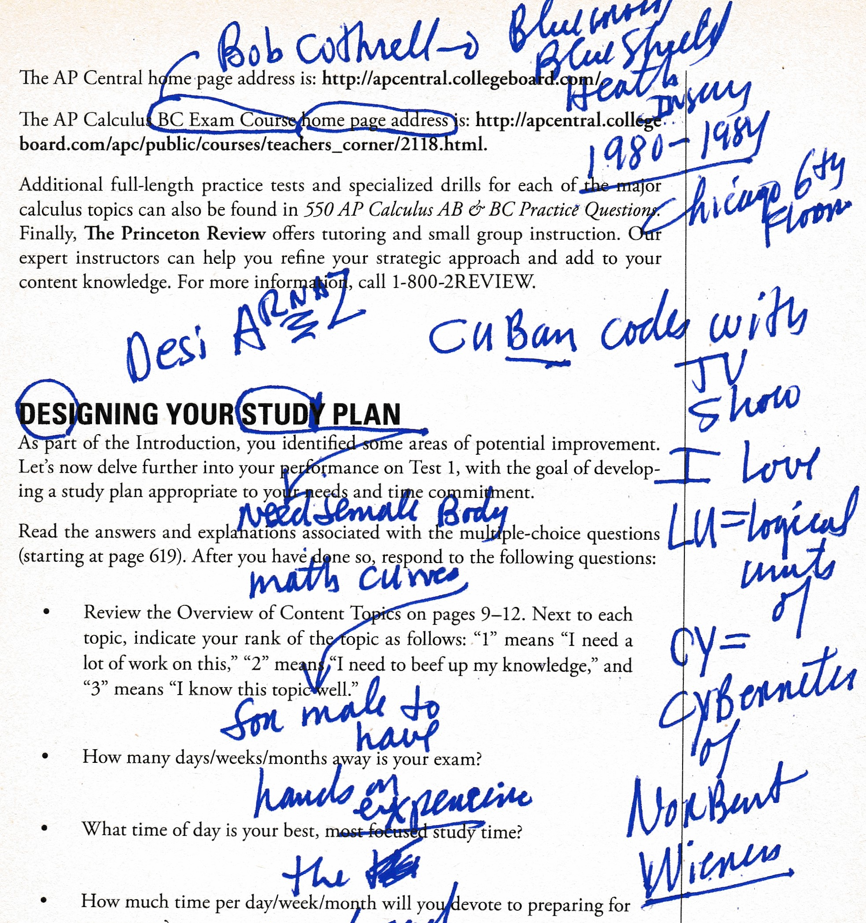 Bob Cothrell → Blue Cross
Blue Shield
Health
Insury
1980-1984
Chicago 6th
Floor
The AP Central home page address is: http://apcentral.collegeboard.com/
The AP Calculus BC Exam Course home page address is: http://apcentral.college-
board.com/apc/public/courses/teachers_corner/2118.html.
Additional full-length practice tests and specialized drills for each of the major
calculus topics can also be found in 550 AP Calculus AB & BC Practice Questions.
Finally, The Princeton Review offers tutoring and small group instruction. Our
expert instructors can help you refine your strategic approach and add to your
content knowledge. For more information, call 1-800-2REVIEW.
Desi ARNAZ
CUBan codes with
TV
Show
I Love
LU=logical
units
of
CY=
CYBernetes
of
NorBert
Wieners
DESIGNING YOUR STUDY PLAN
As part of the Introduction, you identified some areas of potential improvement.
Let's now delve further into your performance on Test 1, with the goal of develop-
ing a study plan appropriate to your needs and time commitment.
Need female Body
Read the answers and explanations associated with the multiple-choice questions
(starting at page 619). After you have done so, respond to the following questions:
math curves
• Review the Overview of Content Topics on pages 9–12. Next to each
topic, indicate your rank of the topic as follows: “1” means “I need a
lot of work on this,” “2” means “I need to beef up my knowledge,” and
“3” means “I know this topic well.”
for male to
have
• How many days/weeks/months away is your exam?
hands on
• What time of day is your best, most focused study time?
the
• How much time per day/week/month will you devote to preparing for